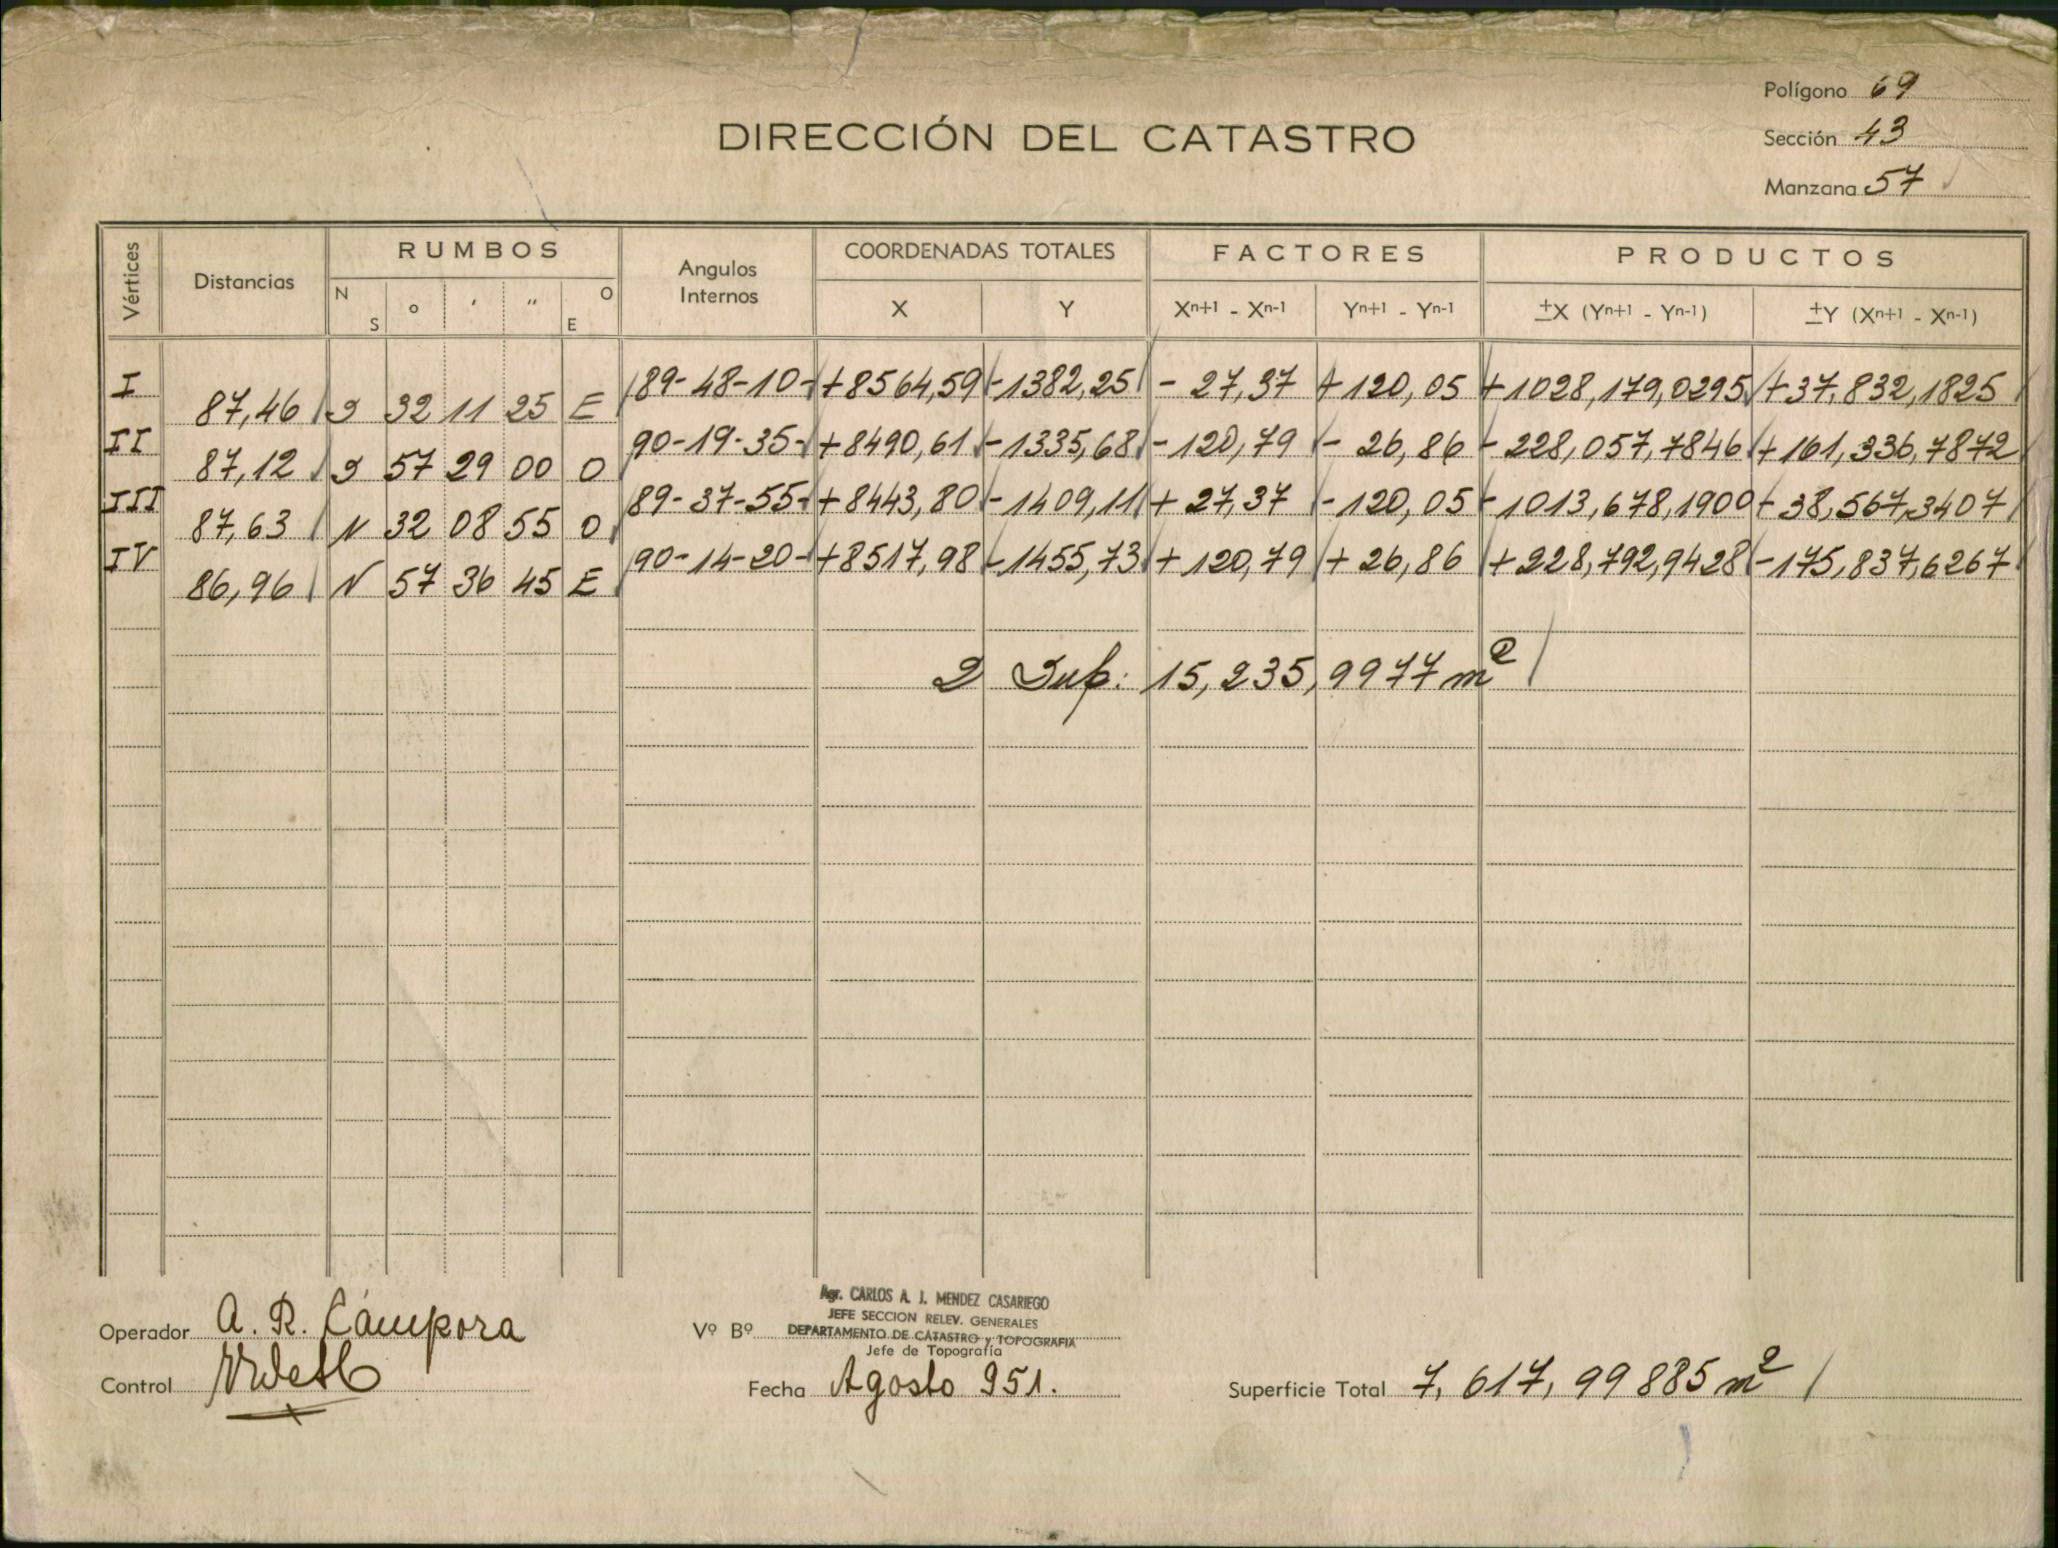 Polígono 69
DIRECCIÓN DEL CATASTRO
Sección 43
Manzana 57
Vértices Distancias RUMBOS Angulos Internos COORDENADAS TOTALES FACTORES PRODUCTOS
N S ° ' " O E X Y Xn+1 - Xn-1 Yn+1 - Yn-1 ±X (Yn+1 - Yn-1) ±Y (Xn+1 - Xn-1)
I 89-48-10- +8564,59 -1382,25 - 27,37 +120,05 +1028,179,0295 +37,832,1825
87,46 S 32 11 25 E
II 90-19-35- +8490,61 -1335,68 -120,79 - 26,86 -228,057,7846 +161,336,7872
87,12 S 57 29 00 O
III 89-37-55- +8443,80 -1409,11 + 27,37 -120,05 -1013,678,1900 - 38,567,3407
87,63 N 32 08 55 O
IV 90-14-20- +8517,98 -1455,73 + 120,79 + 26,86 +228,792,9428 -175,837,6267
86,96 N 57 36 45 E
2 Sup: 15,235,9977 m²
Agr. CARLOS A. J. MENDEZ CASARIEGO
JEFE SECCION RELEV. GENERALES
Operador A. R. Cámpora Vº Bº DEPARTAMENTO DE CATASTRO y TOPOGRAFIA
Jefe de Topografía
Control Fecha Agosto 951. Superficie Total 7,617,99885 m²